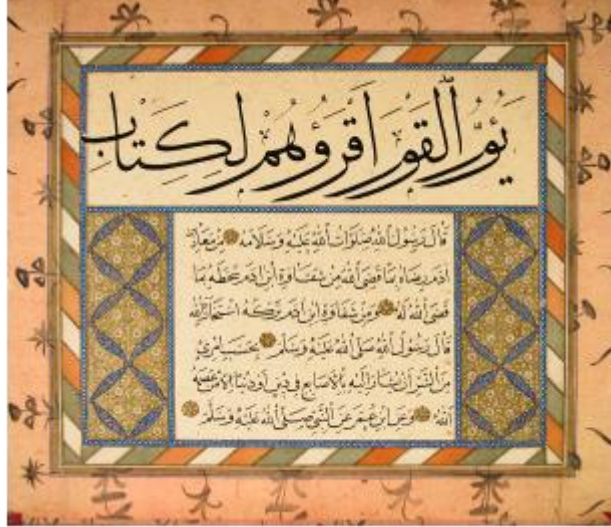 يَؤُمُّ الْقَوْمَ أَقْرَؤُهُمْ لِكِتَابِ
قَالَ رَسُولُ اللهِ صَلَوَاتُ اللهِ عَلَيْهِ وَسَلَامُهُ مِنْ سَعَادَةِ
ابْنِ آدَمَ رِضَاهُ بِمَا قَضَى اللهُ مِنْ شَقَاوَةِ ابْنِ آدَمَ سَخَطُهُ بِمَا
قَضَى اللهُ لَهُ وَمِنْ شَقَاوَةِ ابْنِ آدَمَ تَرْكُهُ اسْتِخَارَةَ اللهِ
قَالَ رَسُولُ اللهِ صَلَّى اللهُ عَلَيْهِ وَسَلَّمَ بِحَسْبِ امْرِئٍ
مِنَ الشَّرِّ أَنْ يُشَارَ إِلَيْهِ بِالْأَصَابِعِ فِي دِينٍ أَوْ دُنْيَا إِلَّا مَنْ عَصَمَهُ
اللهُ وَعَنِ ابْنِ عُمَرَ عَنِ النَّبِيِّ صَلَّى اللهُ عَلَيْهِ وَسَلَّمَ